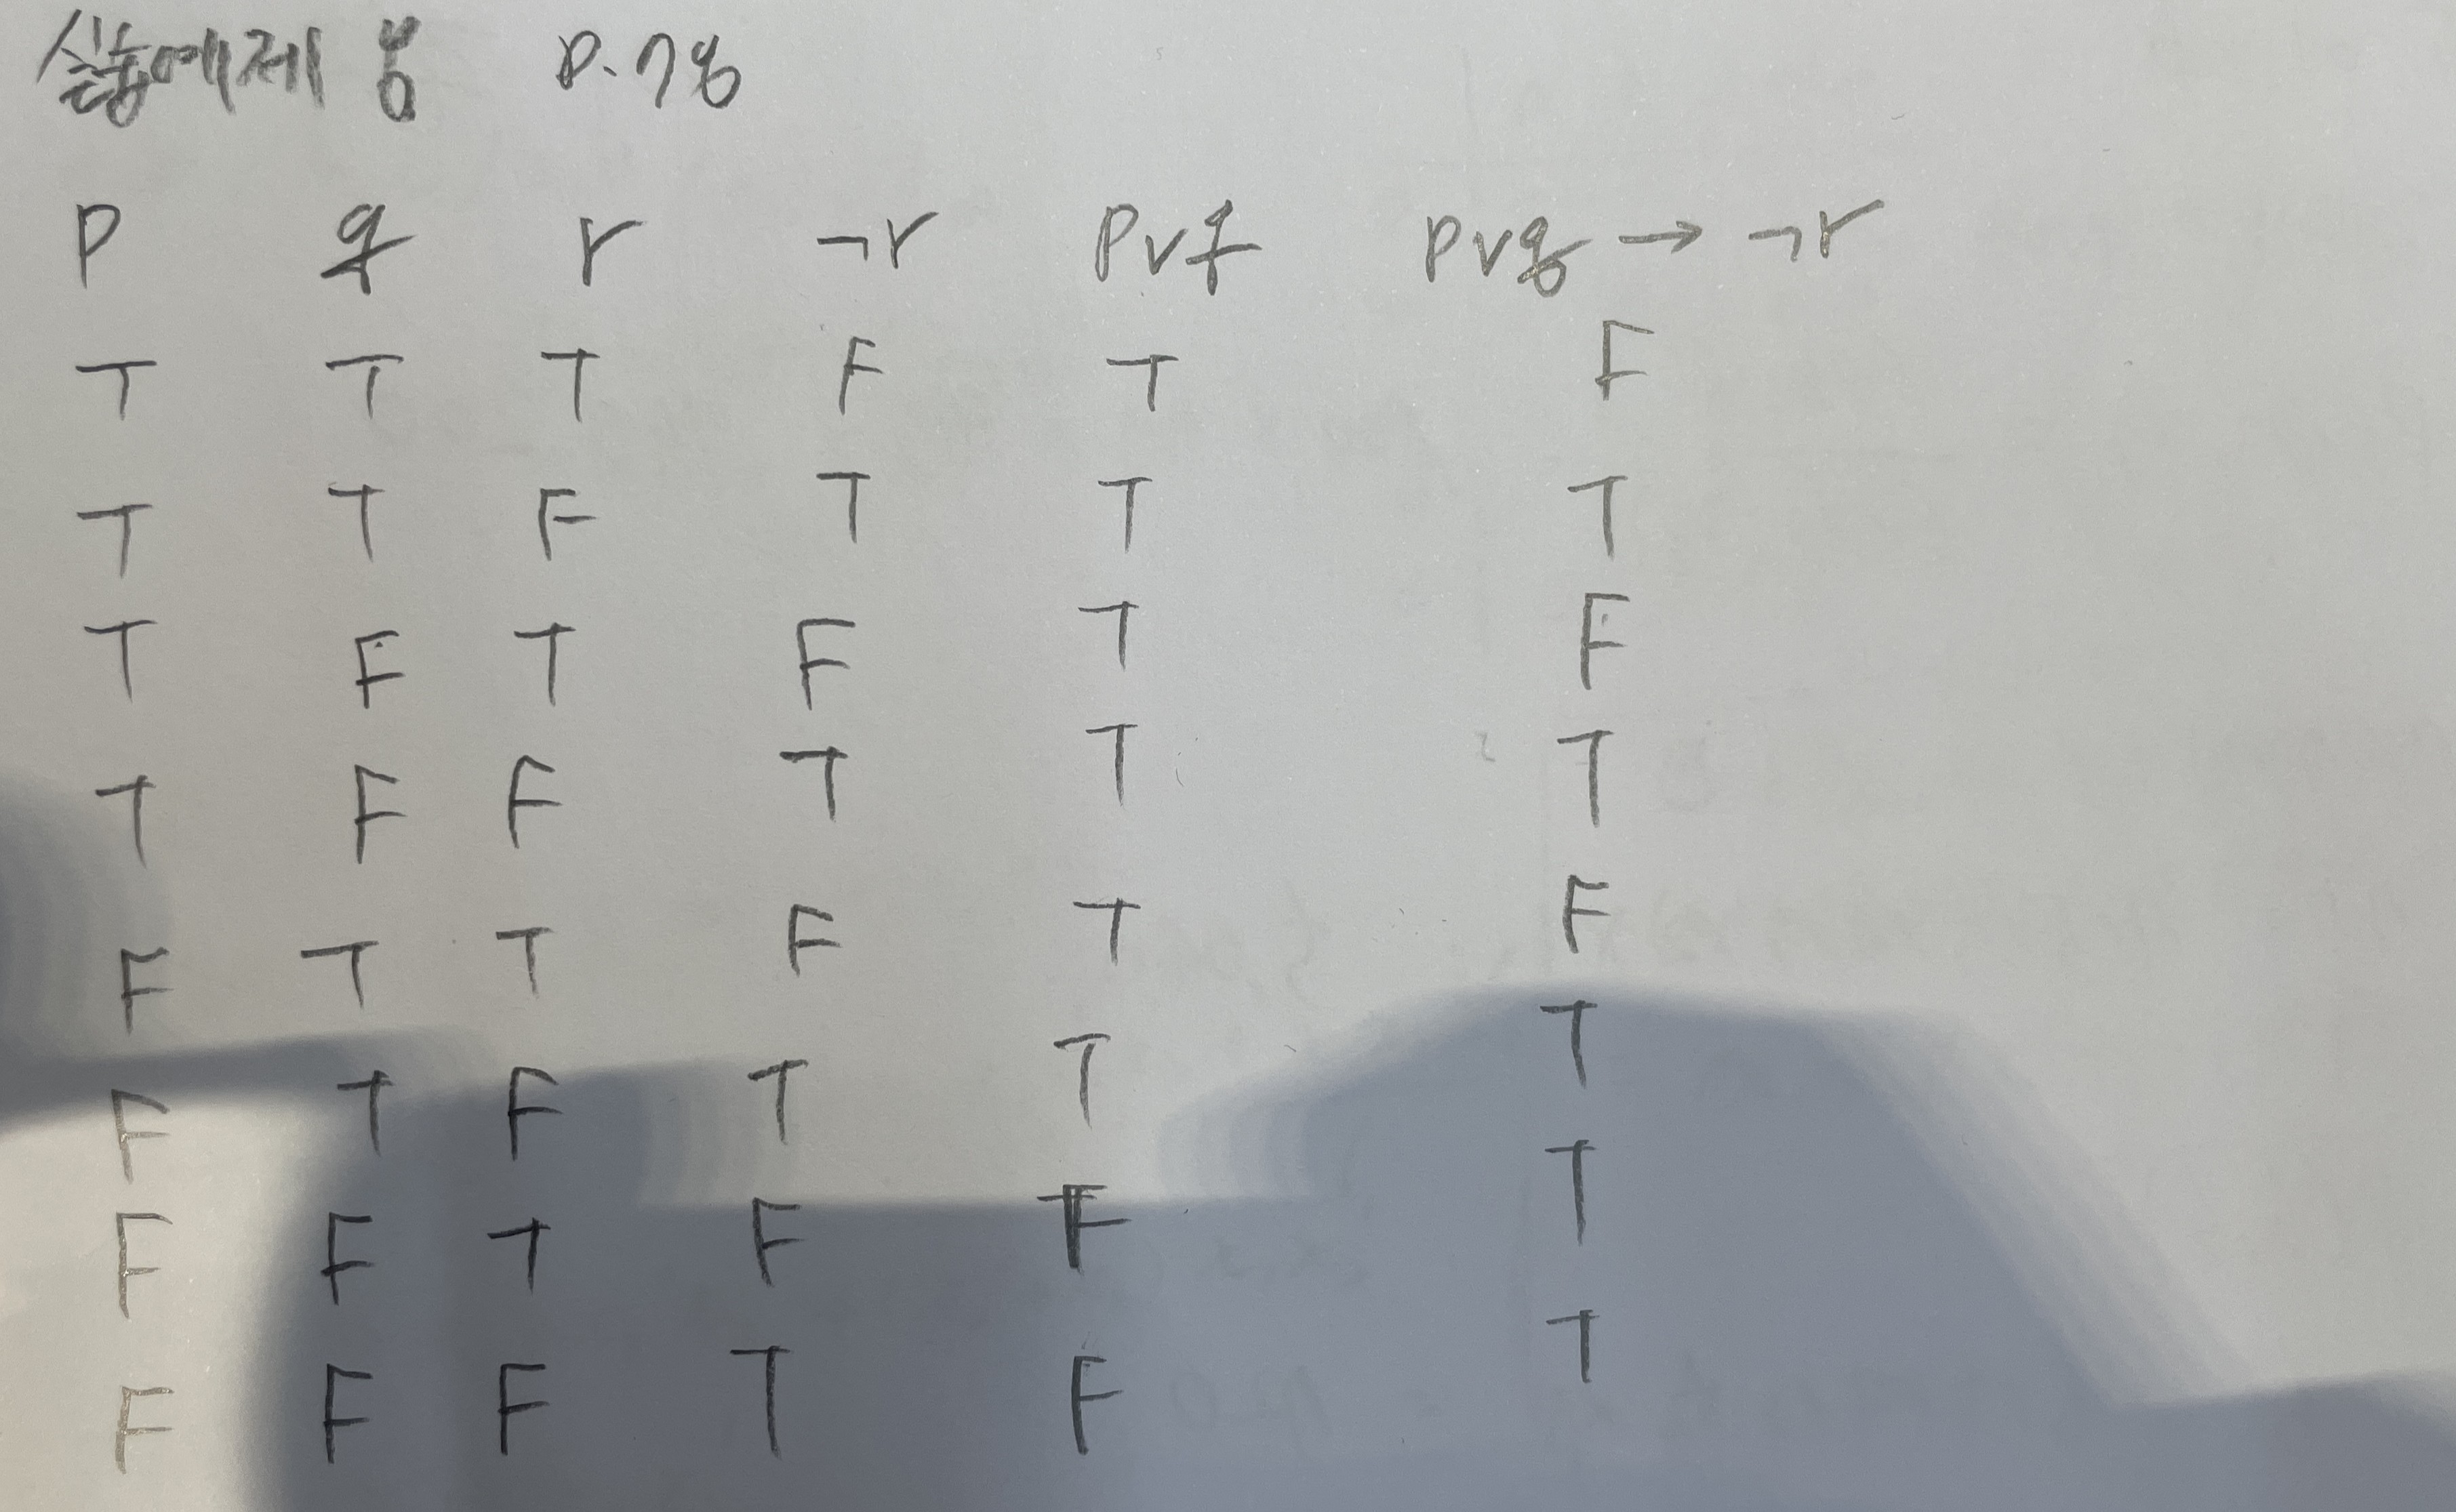 실습예제 8 p.78
p q r ¬r p∨q p∨q → ¬r
T T T F T F
T T F T T T
T F T F T F
T F F T T T
F T T F T F
F T F T T T
F F T F F T
F F F T F T